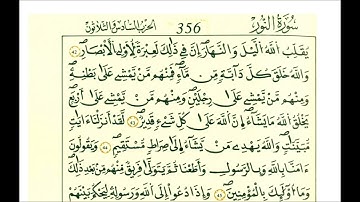 سُورَةُ النُّورِ 356 الحزب السادس والثلاثون
يُقَلِّبُ اللَّهُ الَّيْلَ وَالنَّهَارَ إِنَّ فِي ذَٰلِكَ لَعِبْرَةً لِأُوْلِي الْأَبْصَٰرِ ٤٢
وَاللَّهُ خَلَقَ كُلَّ دَآبَّةٍ مِّن مَّآءٍ فَمِنْهُم مَّنْ يَّمْشِي عَلَىٰ بَطْنِهِ
وَمِنْهُم مَّنْ يَّمْشِي عَلَىٰ رِجْلَيْنِ وَمِنْهُم مَّنْ يَّمْشِي عَلَىٰ أَرْبَعٍ
يَخْلُقُ اللَّهُ مَا يَشَآءُ إِنَّ اللَّهَ عَلَىٰ كُلِّ شَيْءٍ قَدِيرٌ ٤٣ لَّقَدْ أَنزَلْنَآ ءَايَٰتٍ
مُّبَيَّنَٰتٍ وَاللَّهُ يَهْدِي مَنْ يَّشَآءُ إِلَىٰ صِرَٰطٍ مُّسْتَقِيمٍ ٤٤ وَيَقُولُونَ
ءَامَنَّا بِاللَّهِ وَبِالرَّسُولِ وَأَطَعْنَا ثُمَّ يَتَوَلَّىٰ فَرِيقٌ مِّنْهُم مِّنۢ بَعْدِ ذَٰلِكَ
وَمَآ أُوْلَٰٓئِكَ بِالْمُؤْمِنِينَ ٤٥ وَإِذَا دُعُوٓاْ إِلَى اللَّهِ وَرَسُولِهِ لِيَحْكُمَ بَيْنَهُمْ